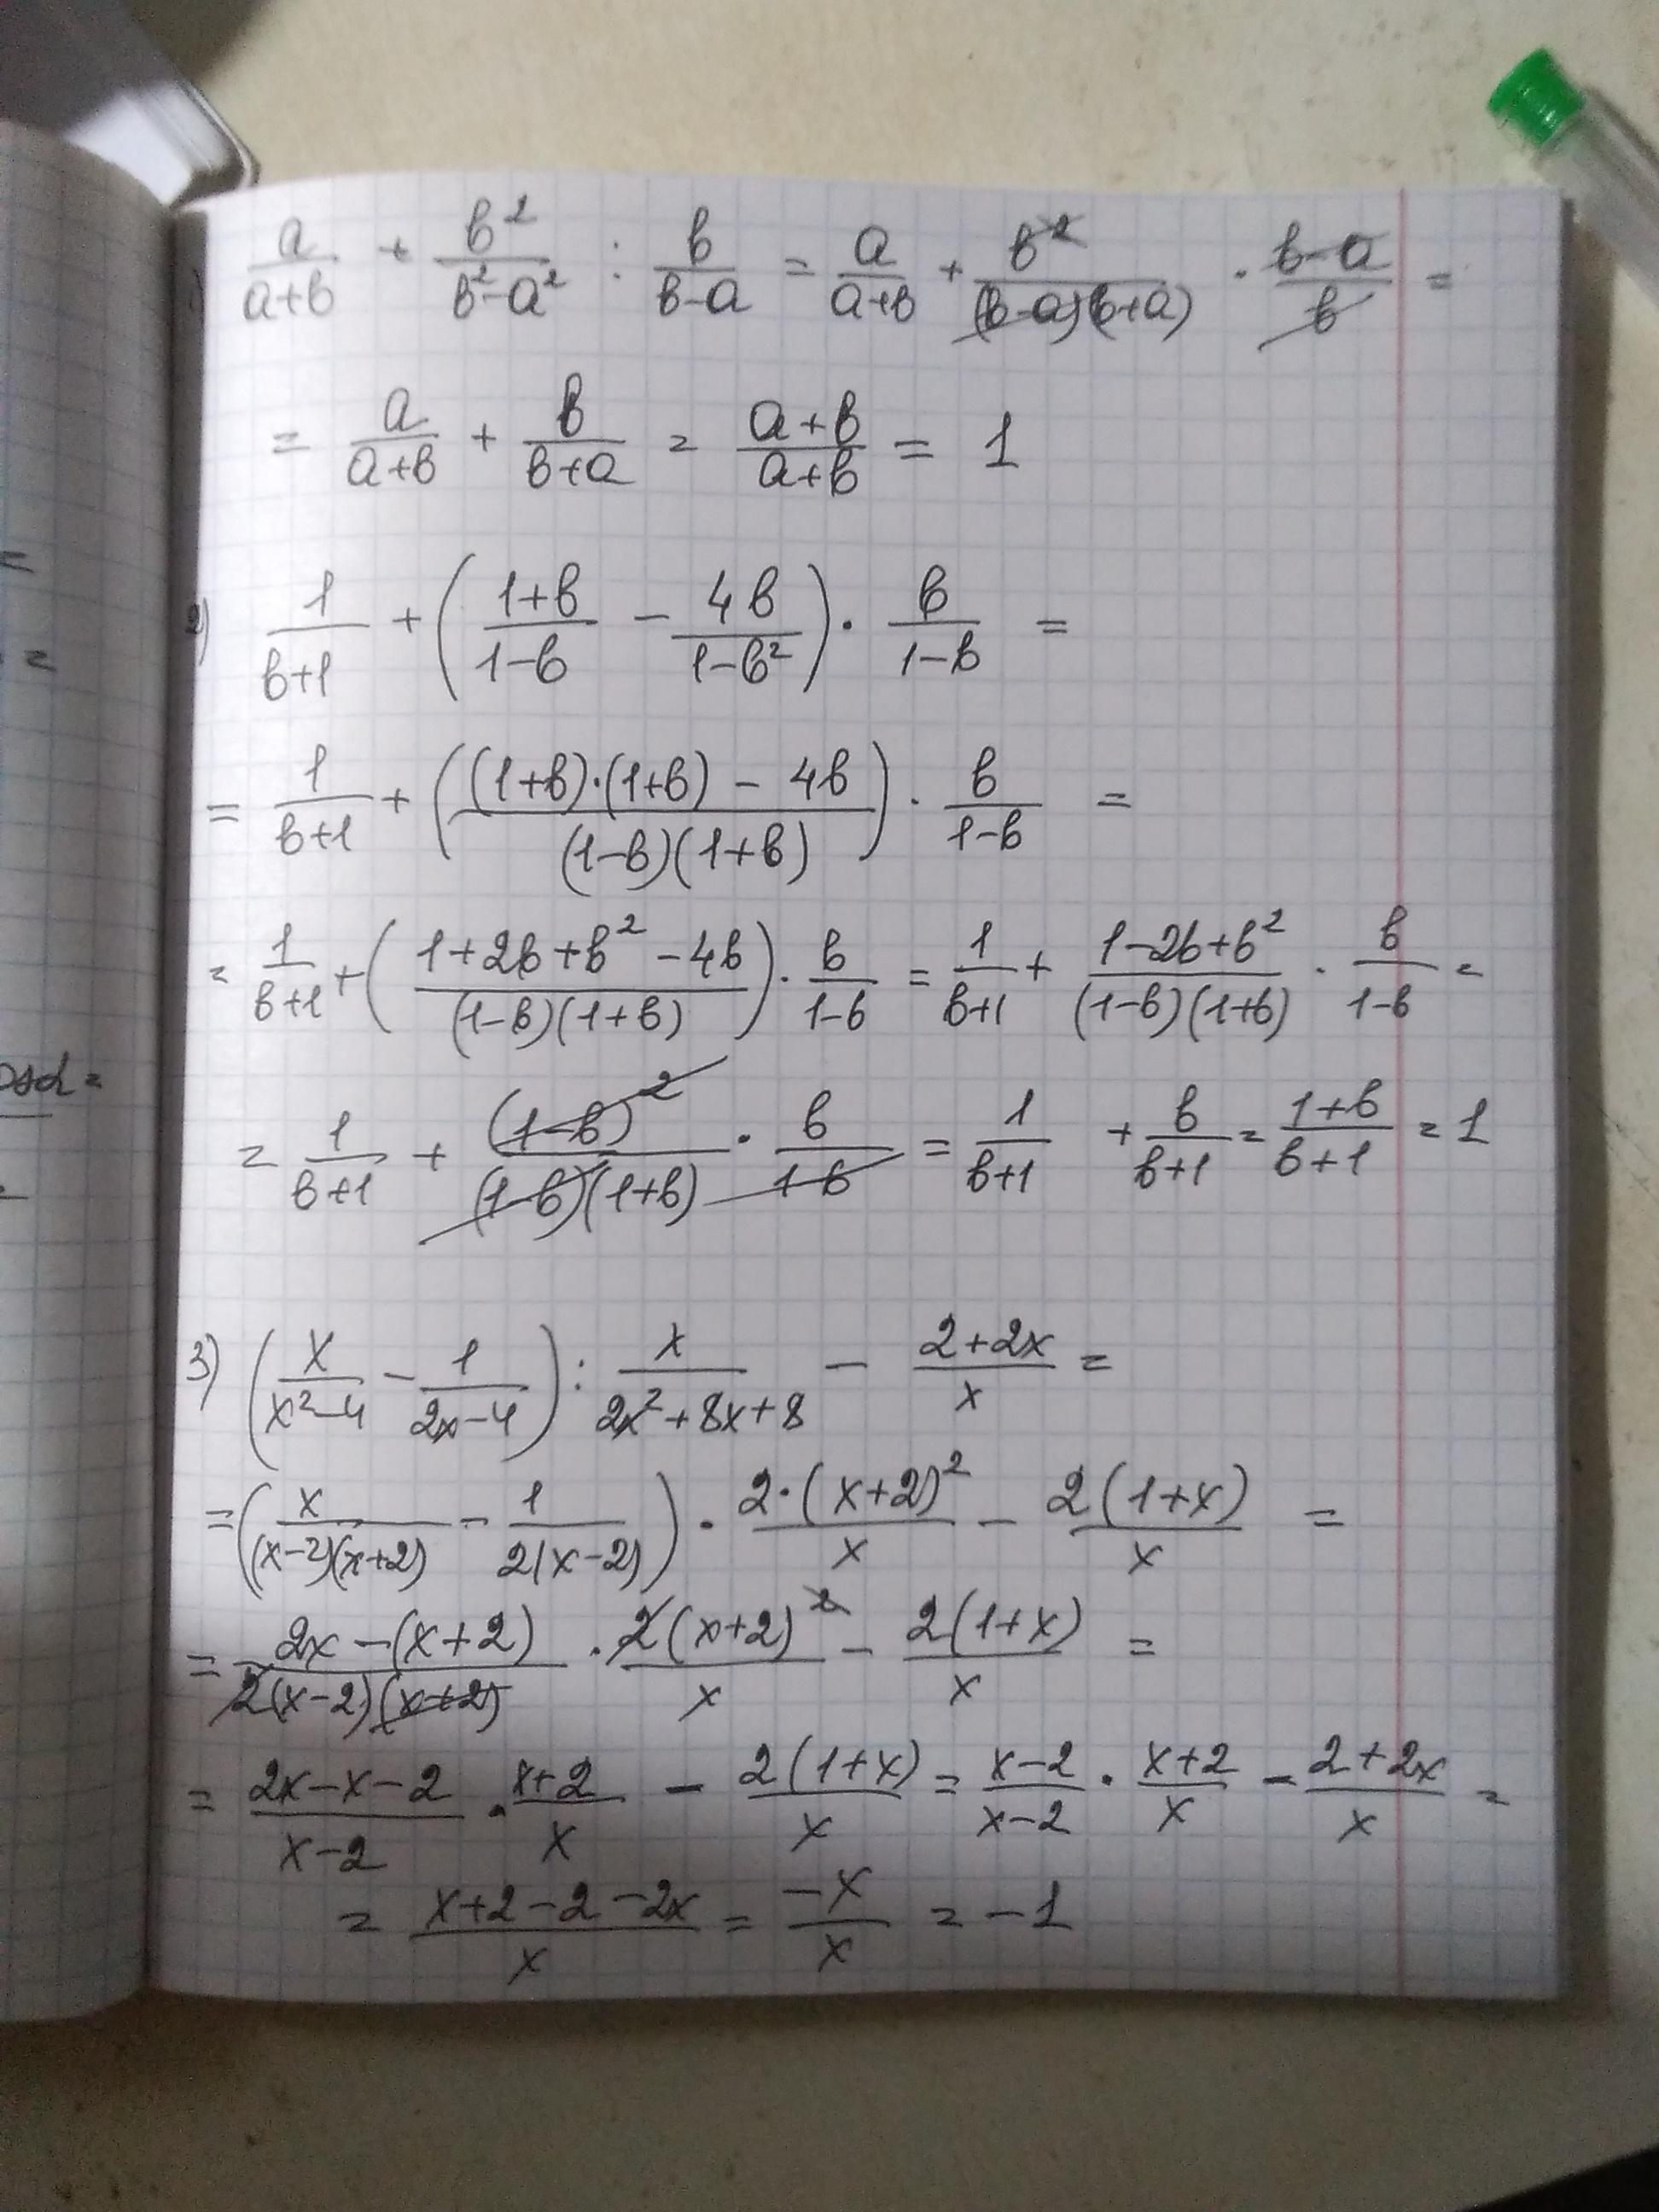 1) a/(a+b) + b²/(b²-a²) : b/(b-a) = a/(a+b) + b²/((b-a)(b+a)) · (b-a)/b =
= a/(a+b) + b/(b+a) = (a+b)/(a+b) = 1
2) 1/(b+1) + ((1+b)/(1-b) - 4b/(1-b²)) · b/(1-b) =
= 1/(b+1) + (((1+b)·(1+b) - 4b)/((1-b)(1+b))) · b/(1-b) =
= 1/(b+1) + ((1+2b+b²-4b)/((1-b)(1+b))) · b/(1-b) = 1/(b+1) + (1-2b+b²)/((1-b)(1+b)) · b/(1-b) =
= 1/(b+1) + (1-b)²/((1-b)(1+b)) · b/(1-b) = 1/(b+1) + b/(b+1) = (1+b)/(b+1) = 1
3) (x/(x²-4) - 1/(2x-4)) : x/(2x²+8x+8) - (2+2x)/x =
= (x/((x-2)(x+2)) - 1/(2(x-2))) · 2·(x+2)²/x - 2(1+x)/x =
= (2x-(x+2))/(2(x-2)(x+2)) · 2(x+2)²/x - 2(1+x)/x =
= (2x-x-2)/(x-2) · (x+2)/x - 2(1+x)/x = (x-2)/(x-2) · (x+2)/x - (2+2x)/x =
= (x+2-2-2x)/x = -x/x = -1